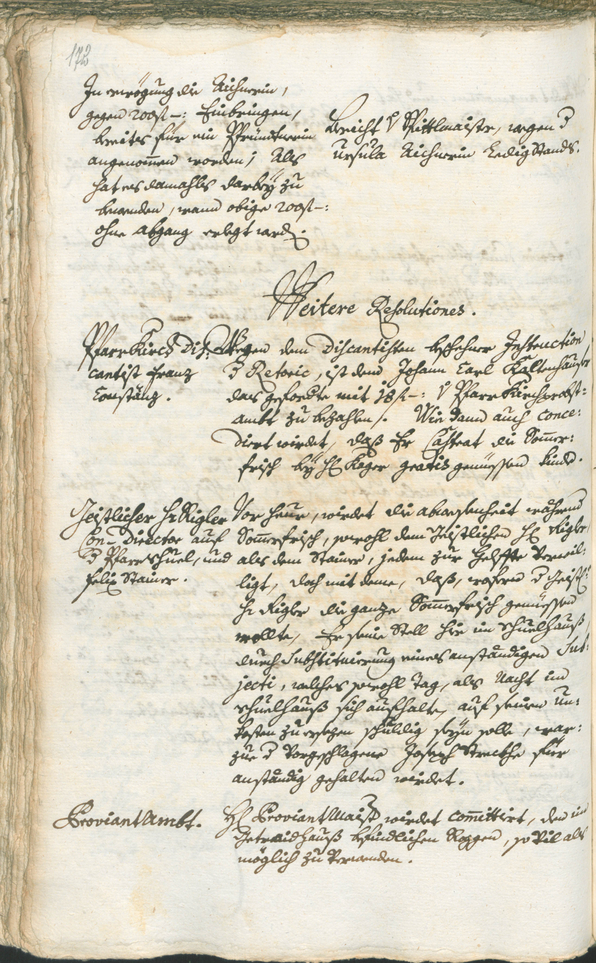 172
In erwögung die Aichnerin,
gegen 200 f –: Einbringen,
bereits für ein Pfründtnerin
angenommen worden; Als
hat es damahls darbey zu
bewenden, wann obige 200 f –:
ohne Abgang erlegt werd.
Bericht H Spittlmaister, wegen d
Ursula Aichnerin Ledig Stands.
Weitere Resolutiones.
PfarrKirch Dis-
cantist Franz
Constanz.
Wegen dem Discantisten beschehner Instruction
d Retoric, ist dem Johann Carl Kaltenhauser
das geforderte mit 18 f –: V Pfarrkirchprobst-
ambt zu bezahlen. Wie dann auch conce-
dirt wirdet, daß Er Castrat die Sommer-
frisch bey H: Kager gratis geniessen kinde.
Geistlicher Hr Rigler
Con-Director auf
d Pfarrschuel, und
Felix Stainer.
Vor heuer, wirdet die abwesenheit während
Sommerfrisch, sowohl dem Geistlichen H: Rigler
als dem Stainer, jedem zur Helffte verwil-
ligt, doch mit deme, daß, wofern d Geistl:
Hr Rigler die ganze Sommerfrisch geniessen
wollte, Er seine Stell hie im Schuelhauß,
durch Substituierung eines anständigen Sub-
jecti, welches sowohl Tag, als Nacht im
Schuelhauß sich aufhalte, auf seine un-
kosten zu ersezen schuldig seyn solle, war-
zue d Vorgeschlagene Joseph für
anständig gehalten wirdet.
ProviantAmbt.
H: ProviantMaistr wirdet committirt, den im
Getraidhauß befindlichen Roggen, so vil als
möglich zu verwenden.